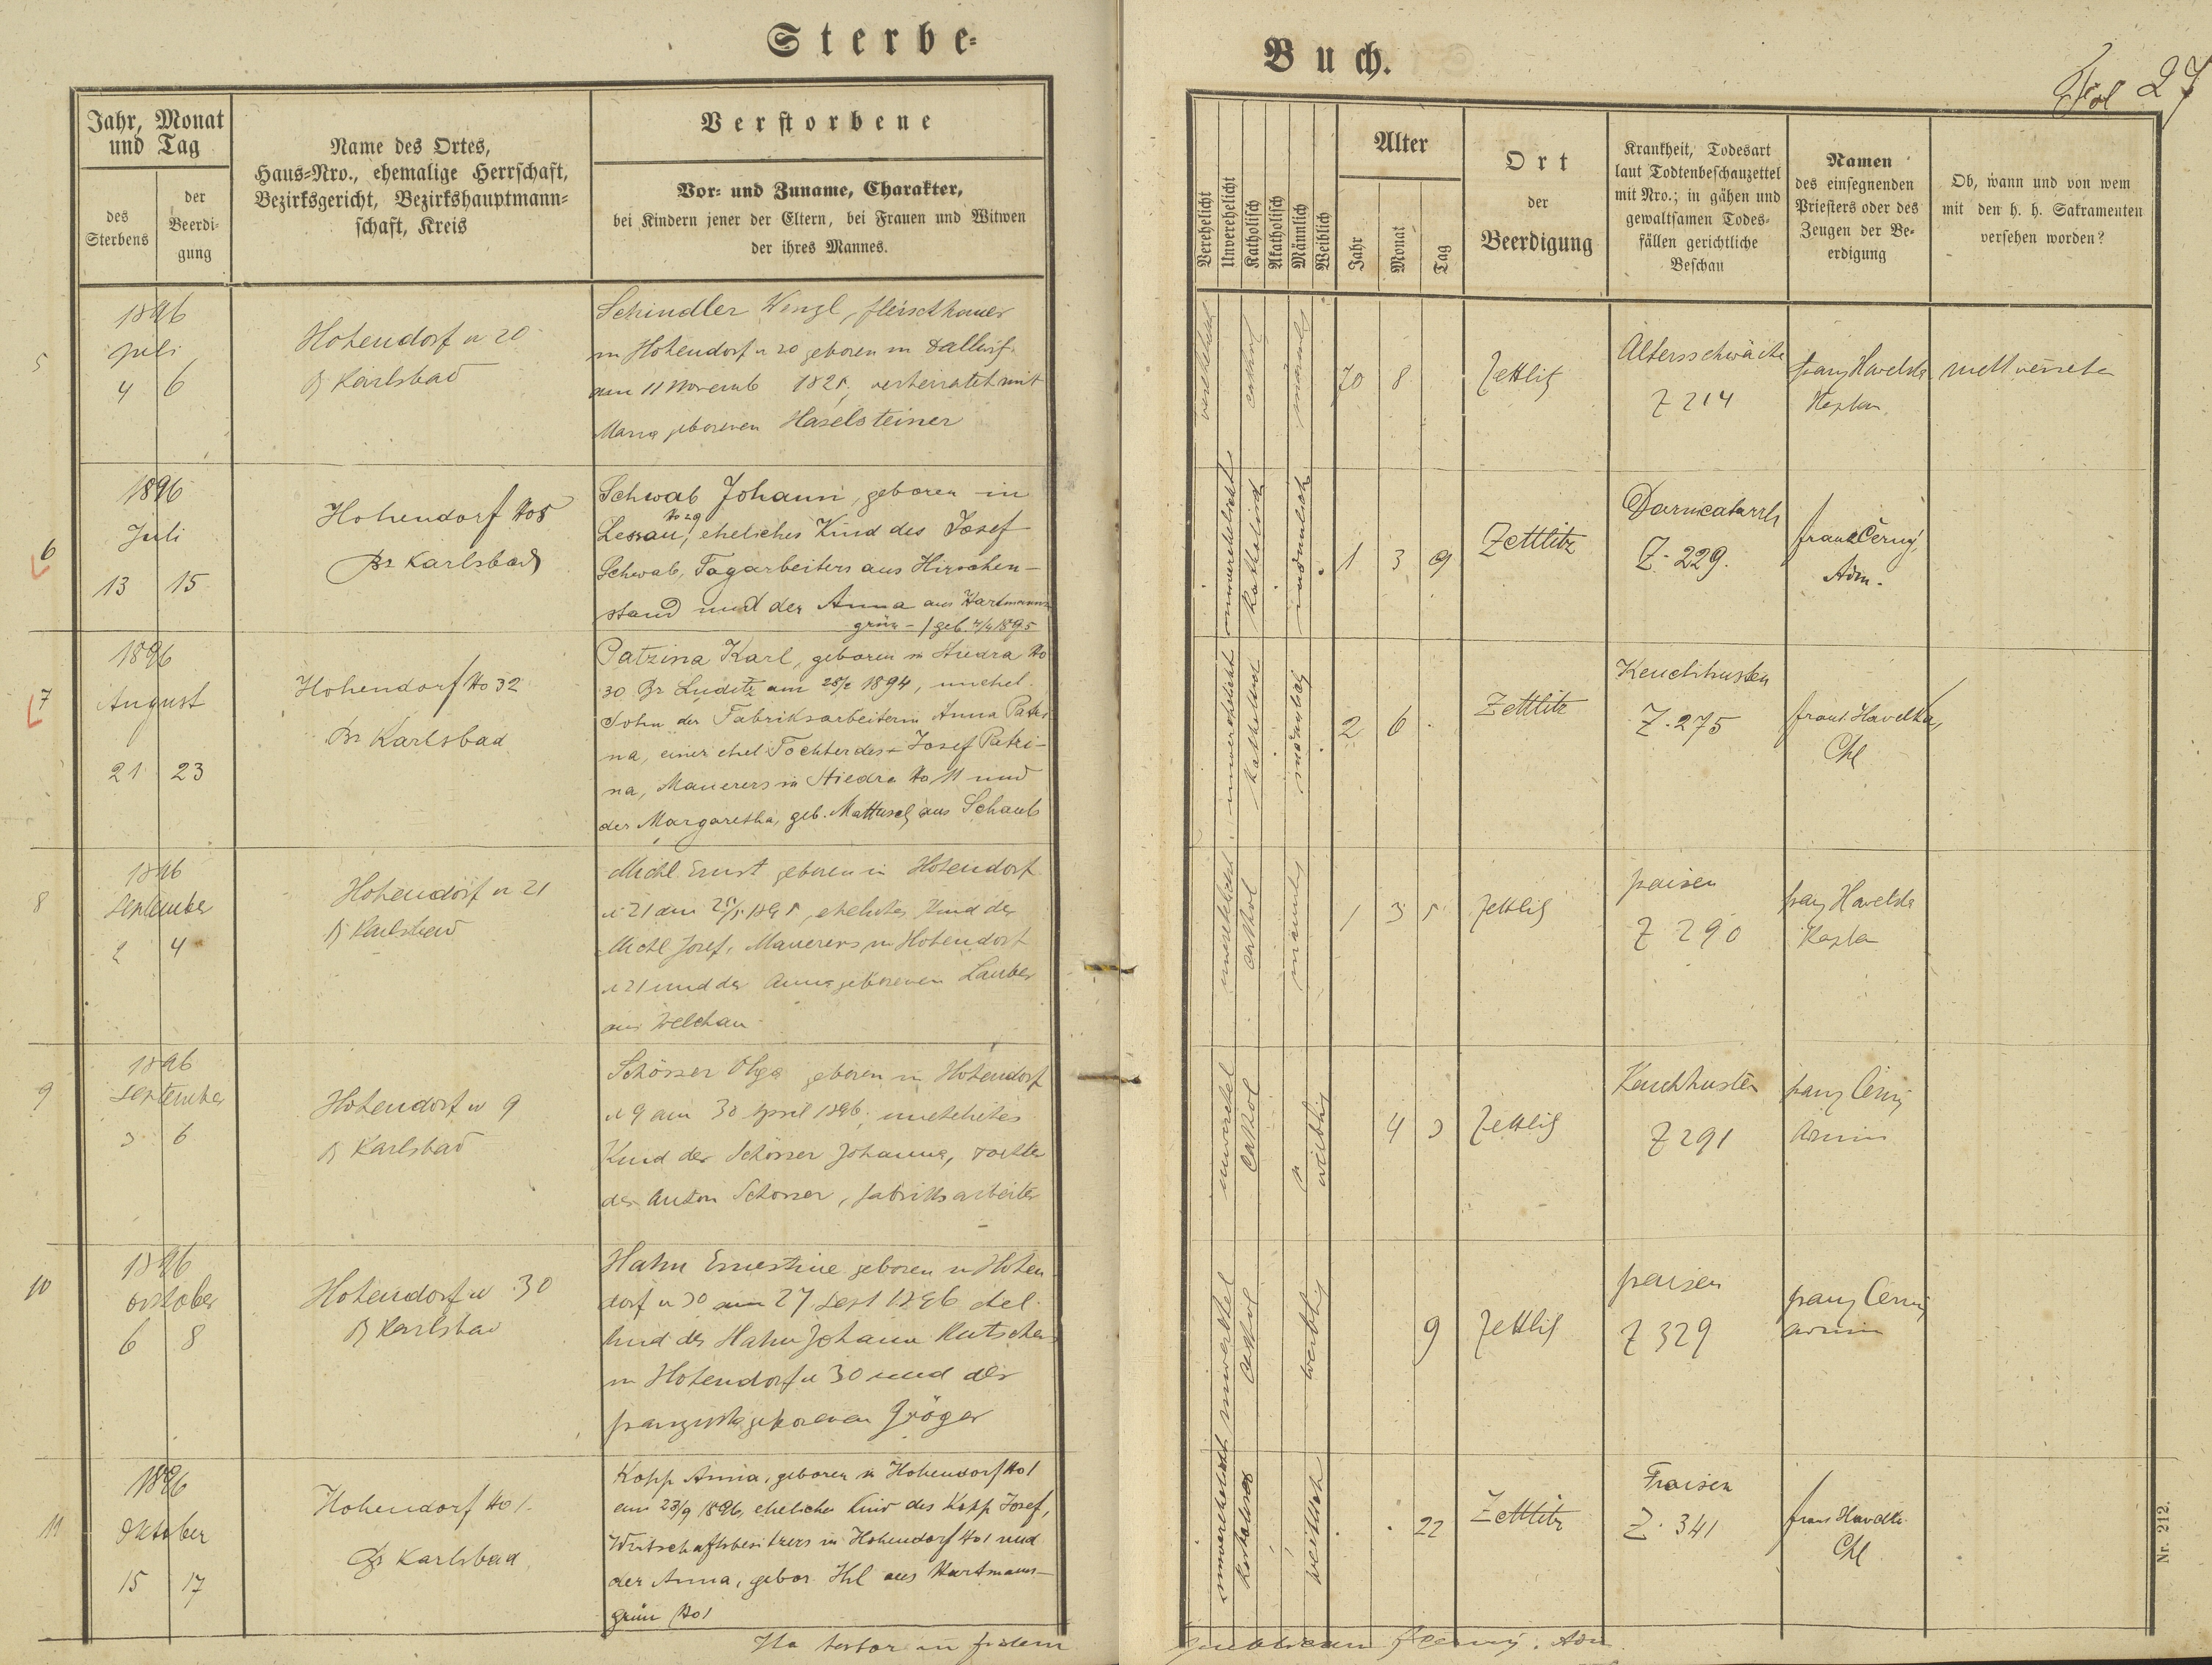 Sterbe=
Buch.
Fol 27
Jahr, Monat
und Tag
des
Sterbens
der
Beerdi=
gung
Name des Ortes,
Haus=Nro., ehemalige Herrschaft,
Bezirksgericht, Bezirkshauptmann=
schaft, Kreis
Verstorbene
Vor= und Zuname, Charakter,
bei Kindern jener der Eltern, bei Frauen und Witwen
der ihres Mannes.
Verehelicht
Unverehelicht
Katholisch
Akatholisch
Männlich
Weiblich
Alter
Jahr
Monat
Tag
Ort
der
Beerdigung
Krankheit, Todesart
laut Todtenbeschauzettel
mit Nro.; in gähen und
gewaltsamen Todes=
fällen gerichtliche
Beschau
Namen
des einsegnenden
Priesters oder des
Zeugen der Be=
erdigung
Ob, wann und von wem
mit den h. h. Sakramenten
versehen worden?
5
1896
Juli
4 6
Hohendorf n 20
B Karlsbad
Schindler Wenzl, fleischhauer
in Hohendorf n 20 geboren in
am 11 Novemb 1825, verheiratet mit
Maria geborenen Haselsteiner
verehelicht
cathol
männlich
70 8
Zettlitz
Altersschwäche
Z 214
Franz Havelka
Kaplan
6
1896
Juli
13 15
Hohendorf No 5
Bz Karlsbad
Schwab Johann, geboren in
Lessau No 29, eheliches Kind des Josef
Schwab, Tagarbeiters aus Hirschen-
stand und der Anna aus Hartmanns
grün - / geb. 4/4 1895
unverehelicht
katholisch
männlich
1 3 9
Zettlitz
Darmcatarrh
Z. 229.
Franz Černý,
Adm.
7
1896
August
21 23
Hohendorf No 32
Bz Karlsbad
Patzina Karl, geboren in Stiedra No
30 Bz Luditz am 28/2 1894, unehel.
Sohn der Fabriksarbeiterin Anna Patzi
na, einer ehel Tochter des + Josef Patzi-
na, Maurers in Stiedra No 11 und
der Margaretha, geb. Mattusch aus Schaub
unverehelicht
katholisch
männlich
2 6
Zettlitz
Keuchhusten
Z. 275
Franz Havelka,
Cpl
8
1896
September
2 4
Hohendorf n 21
B Karlsbad
Michl Ernst geboren in Hohendorf
n 21 am 25/5 1895, eheliches Kind des
Michl Josef, Maurers in Hohendorf
n 21 und der Anna geborenen Lauber
aus Welchau
unverehelicht
cathol
männlich
1 3 5
Zettlitz
fraisen
Z 290
Franz Havelka
Kaplan
9
1896
September
3 6
Hohendorf n 9
B Karlsbad
Schösser Olga geboren in Hohendorf
n 9 am 30 April 1896, uneheliches
Kind der Schösser Johanna, Tochter
des Anton Schösser, fabriksarbeiter
unverehel
cathol
weiblich
4 3
Zettlitz
Keuchhusten
Z 291
Franz Černý
Admin
10
1896
October
6 8
Hohendorf n 30
B Karlsbad
Hahn Ernestine geboren in Hohen
dorf n 30 am 27 Sept 1896 ehel.
Kind des Hahn Johann Kutscher
in Hohendorf n 30 und der
Franziska geborenen Gröger
unverehel
cathol
weiblich
9
Zettlitz
fraisen
Z 329
Franz Černý
Admin
11
1896
Oktober
15 17
Hohendorf No 1.
Bz Karlsbad
Kopp Anna, geboren in Hohendorf No 1
am 23/9 1896, eheliches Kind des Kopp Josef,
Wirtschaftsbesitzers in Hohendorf No 1 und
der Anna, gebor. Hil aus Hartmanns-
grün No 1
unverehelicht
katholisch
weiblich
22
Zettlitz
Fraisen
Z. 341
Franz Havelka
Cpl
Ita testor in fidem
publicam F Černý. Adm.
Nr. 212.